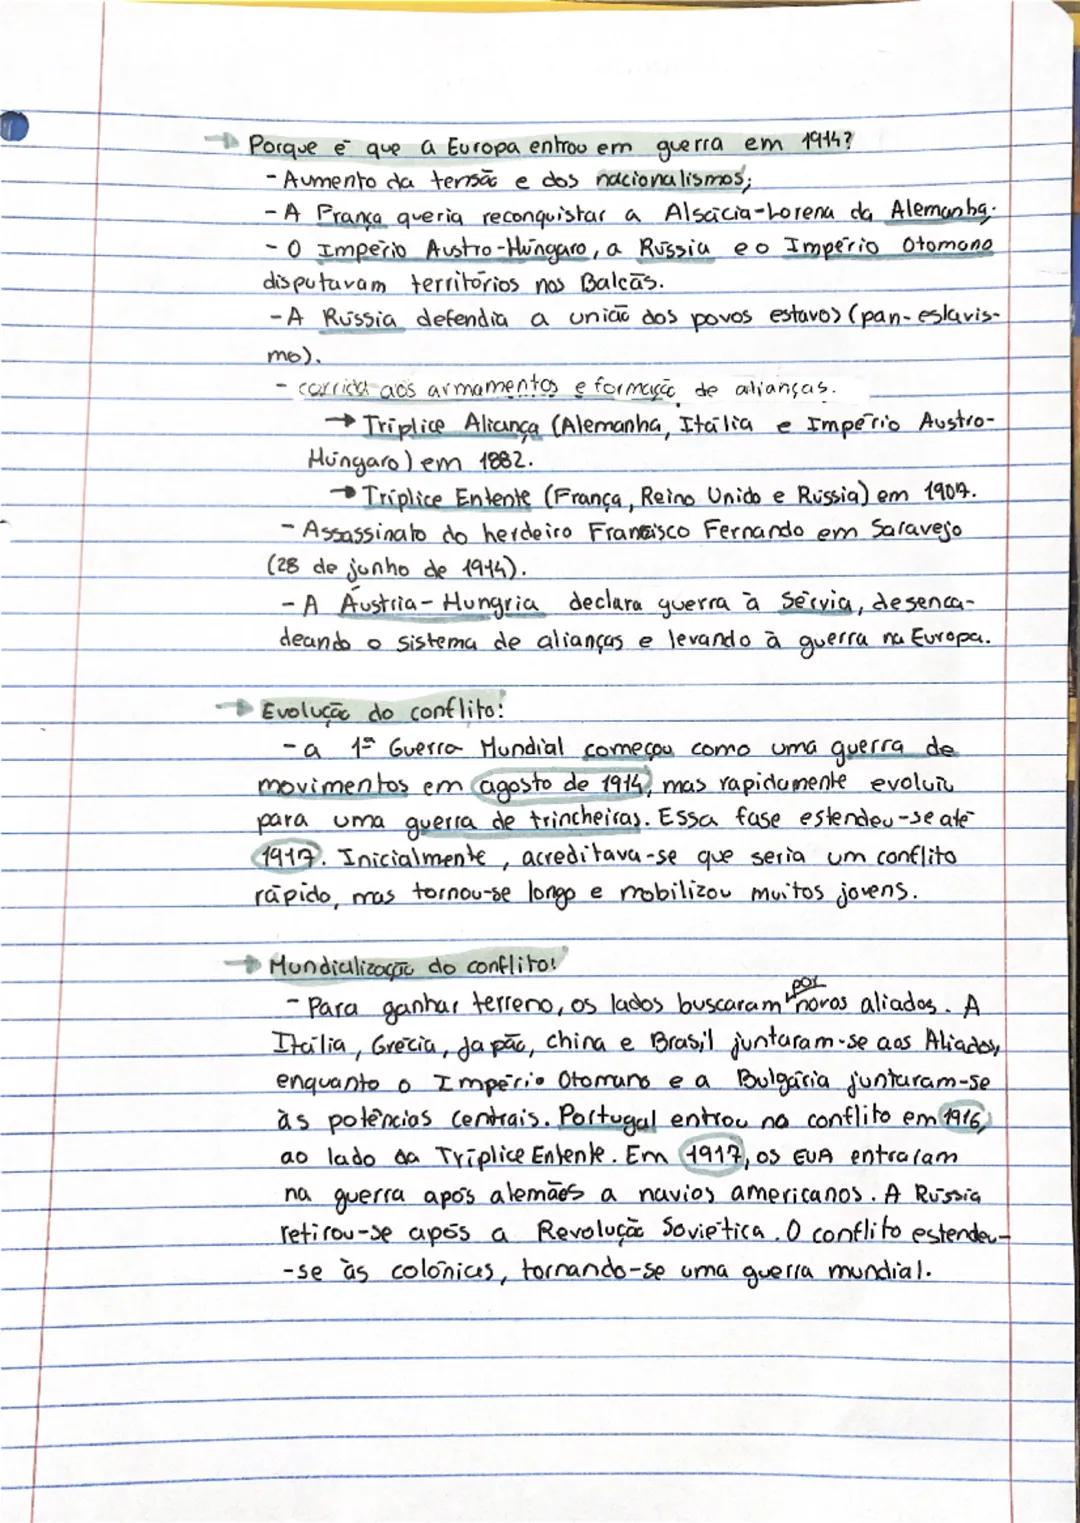 → Porque é que a Europa entrou em guerra em 1914?
- Aumento da tensão e dos nacionalismos;
- A França queria reconquistar a Alsácia-Lorena da Alemanha.
- O Império Austro-Húngaro, a Rússia e o Império Otomano
disputavam territórios nos Balcãs.
- A Rússia defendia a união dos povos estavos (pan-eslavis-
mo).
- corrida aos armamentos e formação de alianças.
→ Tríplice Aliança (Alemanha, Itália e Império Austro-
Húngaro) em 1882.
→ Tríplice Entente (França, Reino Unido e Rússia) em 1907.
- Assassinato do herdeiro Francisco Fernando em Saravejo
(28 de junho de 1914).
- A Áustria-Hungria declara guerra à Sérvia, desenca-
deando o sistema de alianças e levando à guerra na Europa.
→ Evolução do conflito:
- a 1ª Guerra Mundial começou como uma guerra de
movimentos em agosto de 1914, mas rapidamente evoluiu
para uma guerra de trincheiras. Essa fase estendeu-se até
1917. Inicialmente, acreditava-se que seria um conflito
rápido, mas tornou-se longo e mobilizou muitos jovens.
→ Mundialização do conflito:
- Para ganhar terreno, os lados buscaram por novos aliados. A
Itália, Grécia, Japão, china e Brasil juntaram-se aos Aliados,
enquanto o Império Otomano e a Bulgária juntaram-se
às potências Centrais. Portugal entrou no conflito em 1916,
ao lado da Tríplice Entente. Em 1917, os EUA entraram
na guerra após alemães a navios americanos. A Rússia
retirou-se após a Revolução Soviética. O conflito estendeu-
-se às colónias, tornando-se uma guerra mundial.